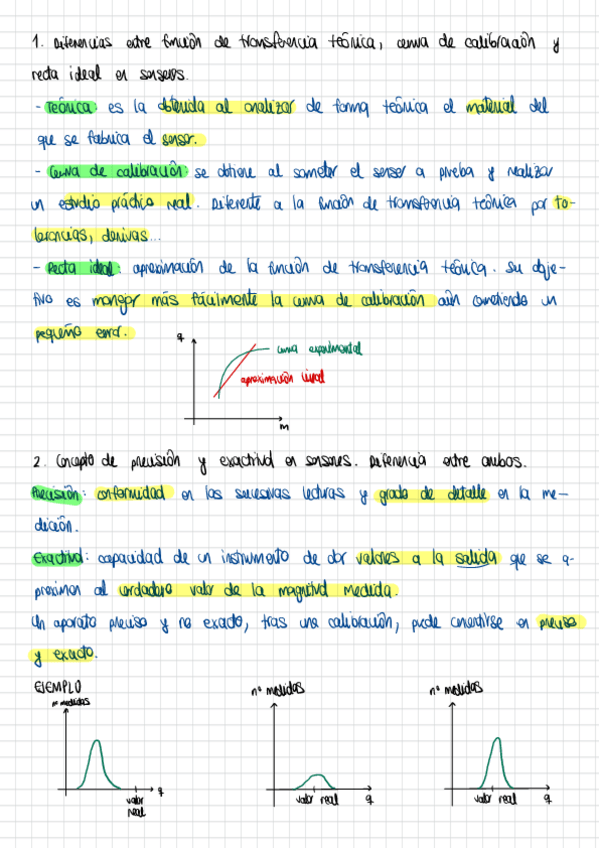 1. Diferencias entre función de transferencia teórica, curva de calibración y
recta ideal en sensores.
- Teórica: es la obtenida al analizar de forma teórica el material del
que se fabrica el sensor.
- Curva de calibración: se obtiene al someter el sensor a prueba y realizar
un estudio práctico real. Diferente a la función de transferencia teórica por to-
lerancias, derivas...
- Recta ideal: aproximación de la función de transferencia teórica. Su obje-
tivo es manejar más fácilmente la curva de calibración aún cometiendo un
pequeño error.
q
curva experimental
aproximación lineal
m
2. Concepto de precisión y exactitud en sensores. Diferencia entre ambos.
Precisión: conformidad en las sucesivas lecturas y grado de detalle en la me-
dición.
Exactitud: capacidad de un instrumento de dar valores a la salida que se a-
proximan al verdadero valor de la magnitud medida.
Un aparato preciso y no exacto, tras una calibración, puede convertirse en preciso
y exacto.
EJEMPLO
nº medidas
nº medidas
nº medidas
valor real q
valor real q
valor real q